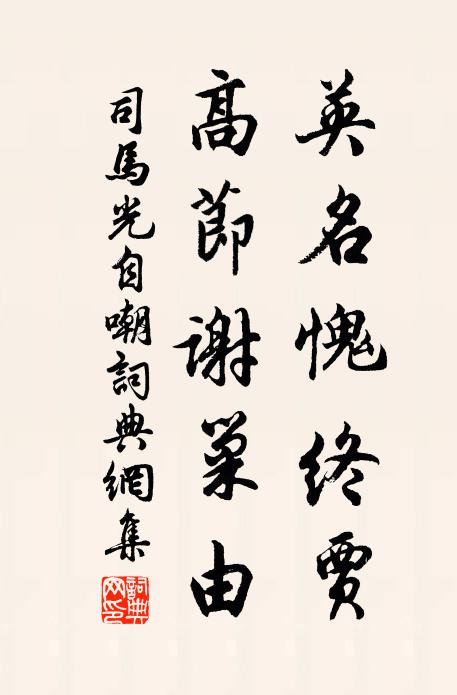 英名愧終賈
高節謝巢由
司馬光自嘲詞典網集
詞典網印